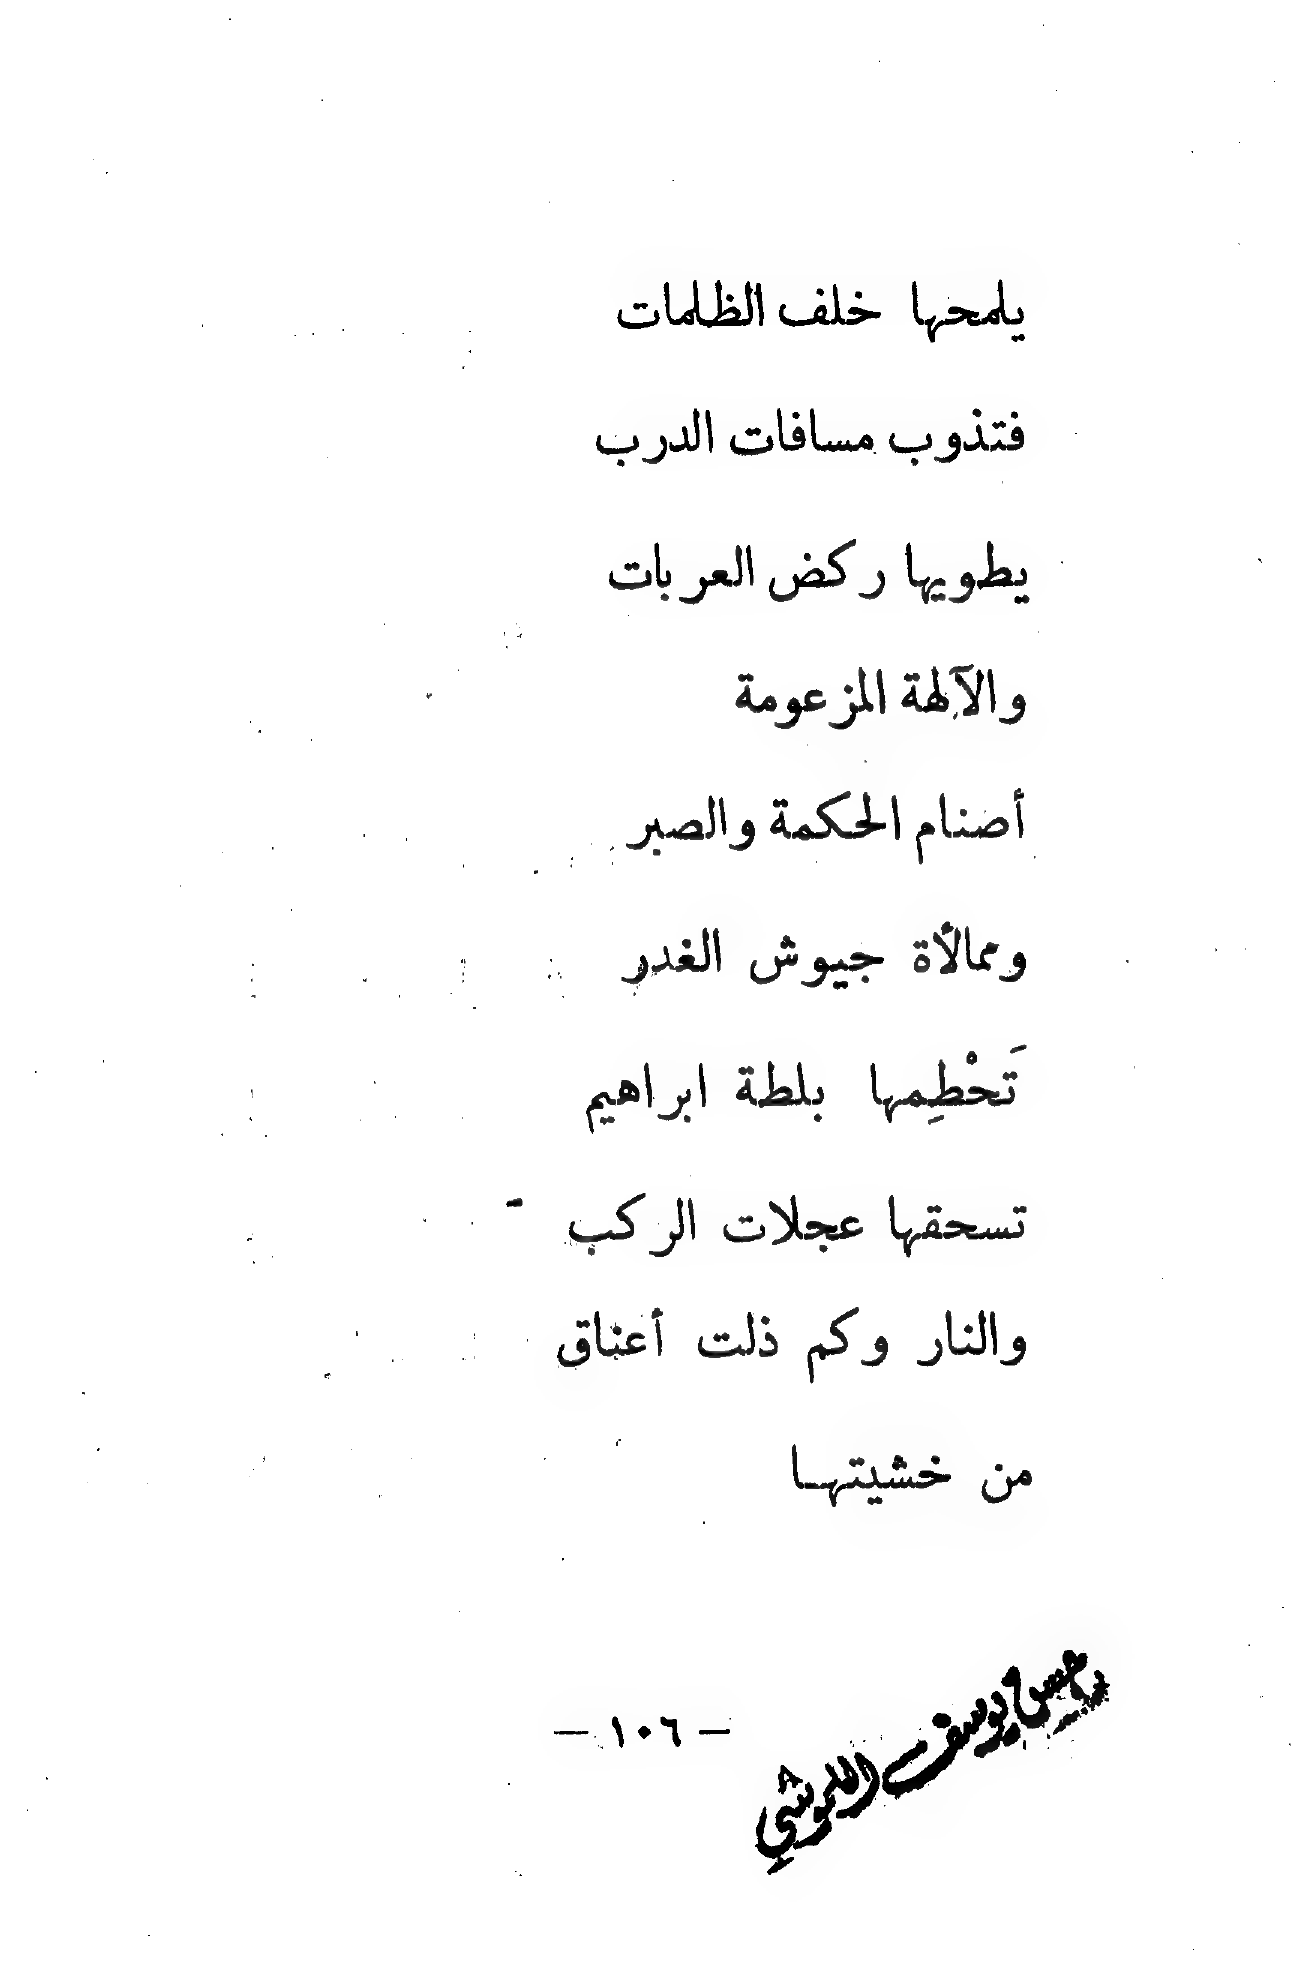 يلمحها خلف الظلمات
فتذوب مسافات الدرب
يطويها ركض العربات
والآلهة المزعومة
أصنام الحكمة والصبر
وممالأة جيوش الغدر
تَحْطِمها بلطة ابراهيم
تسحقها عجلات الركب
والنار وكم ذلت أعناق
من خشيتها
— ١٠٦ —
يوسف